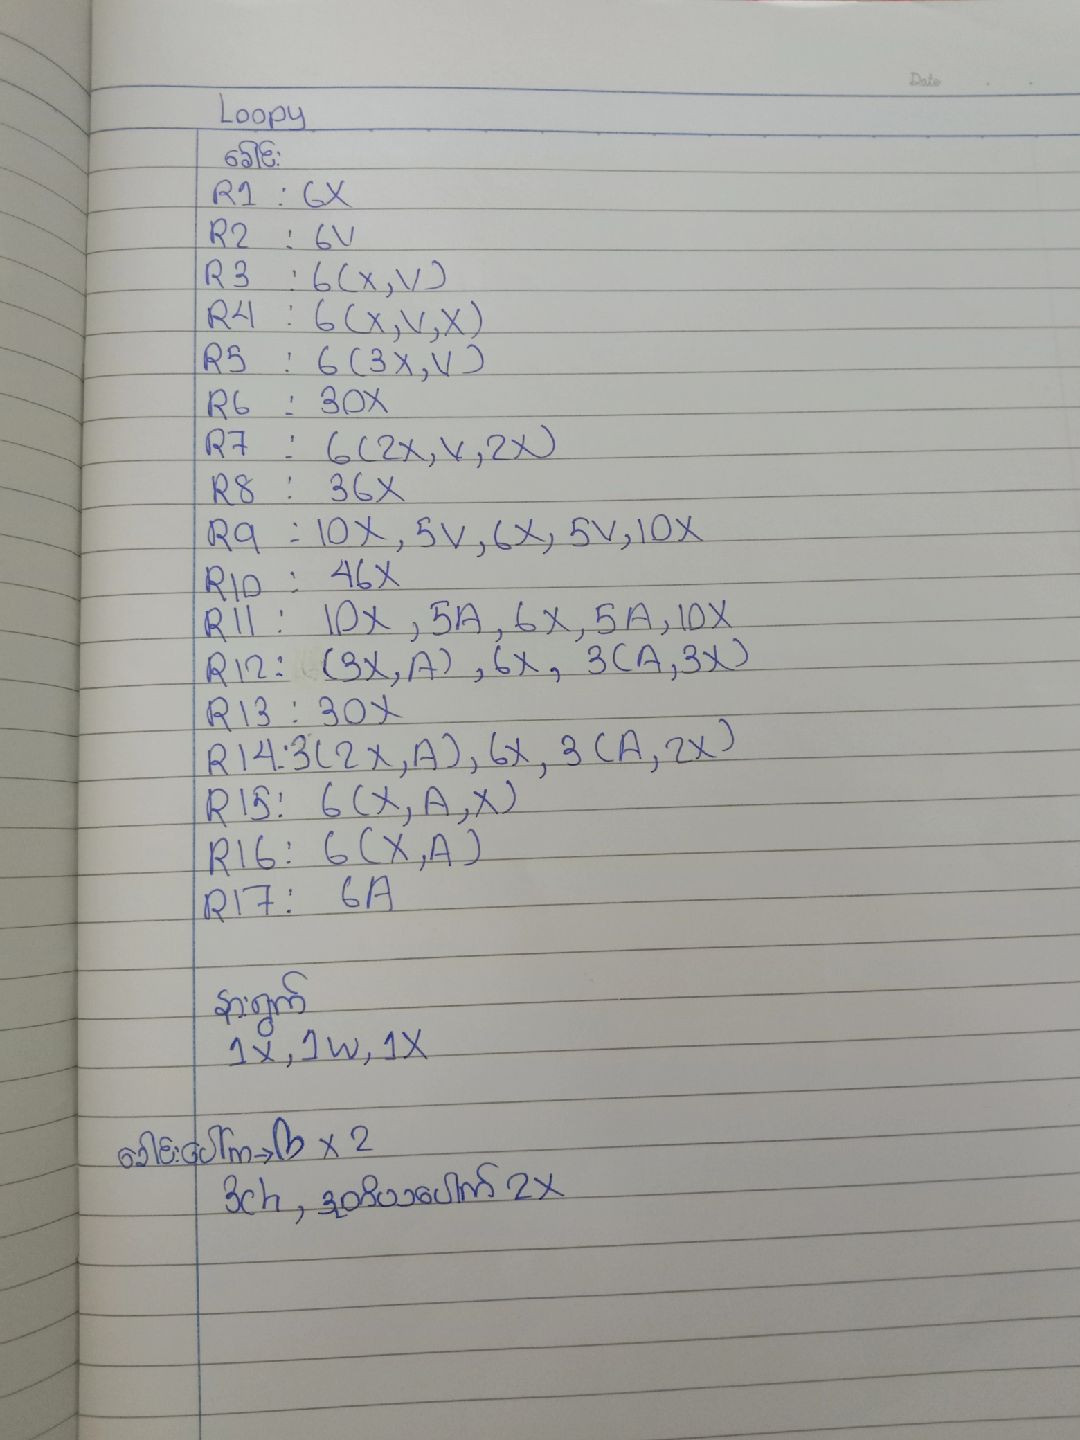 Date
Loopy
ခေါင်း
R1 : 6X
R2 : 6V
R3 : 6(X,V)
R4 : 6(X,V,X)
R5 : 6(3X,V)
R6 : 30X
R7 : 6(2X,V,2X)
R8 : 36X
R9 : 10X,5V,6X,5V,10X
R10 : 46X
R11 : 10X,5A,6X,5A,10X
R12: (3X,A),6X, 3(A,3X)
R13 : 30X
R14:3(2X,A),6X, 3(A,2X)
R15: 6(X,A,X)
R16: 6(X,A)
R17: 6A
နားရွက်
1X,1W,1X
ခေါင်းပေါ်က→ x 2
3ch, ဒုတိယပေါက် 2X